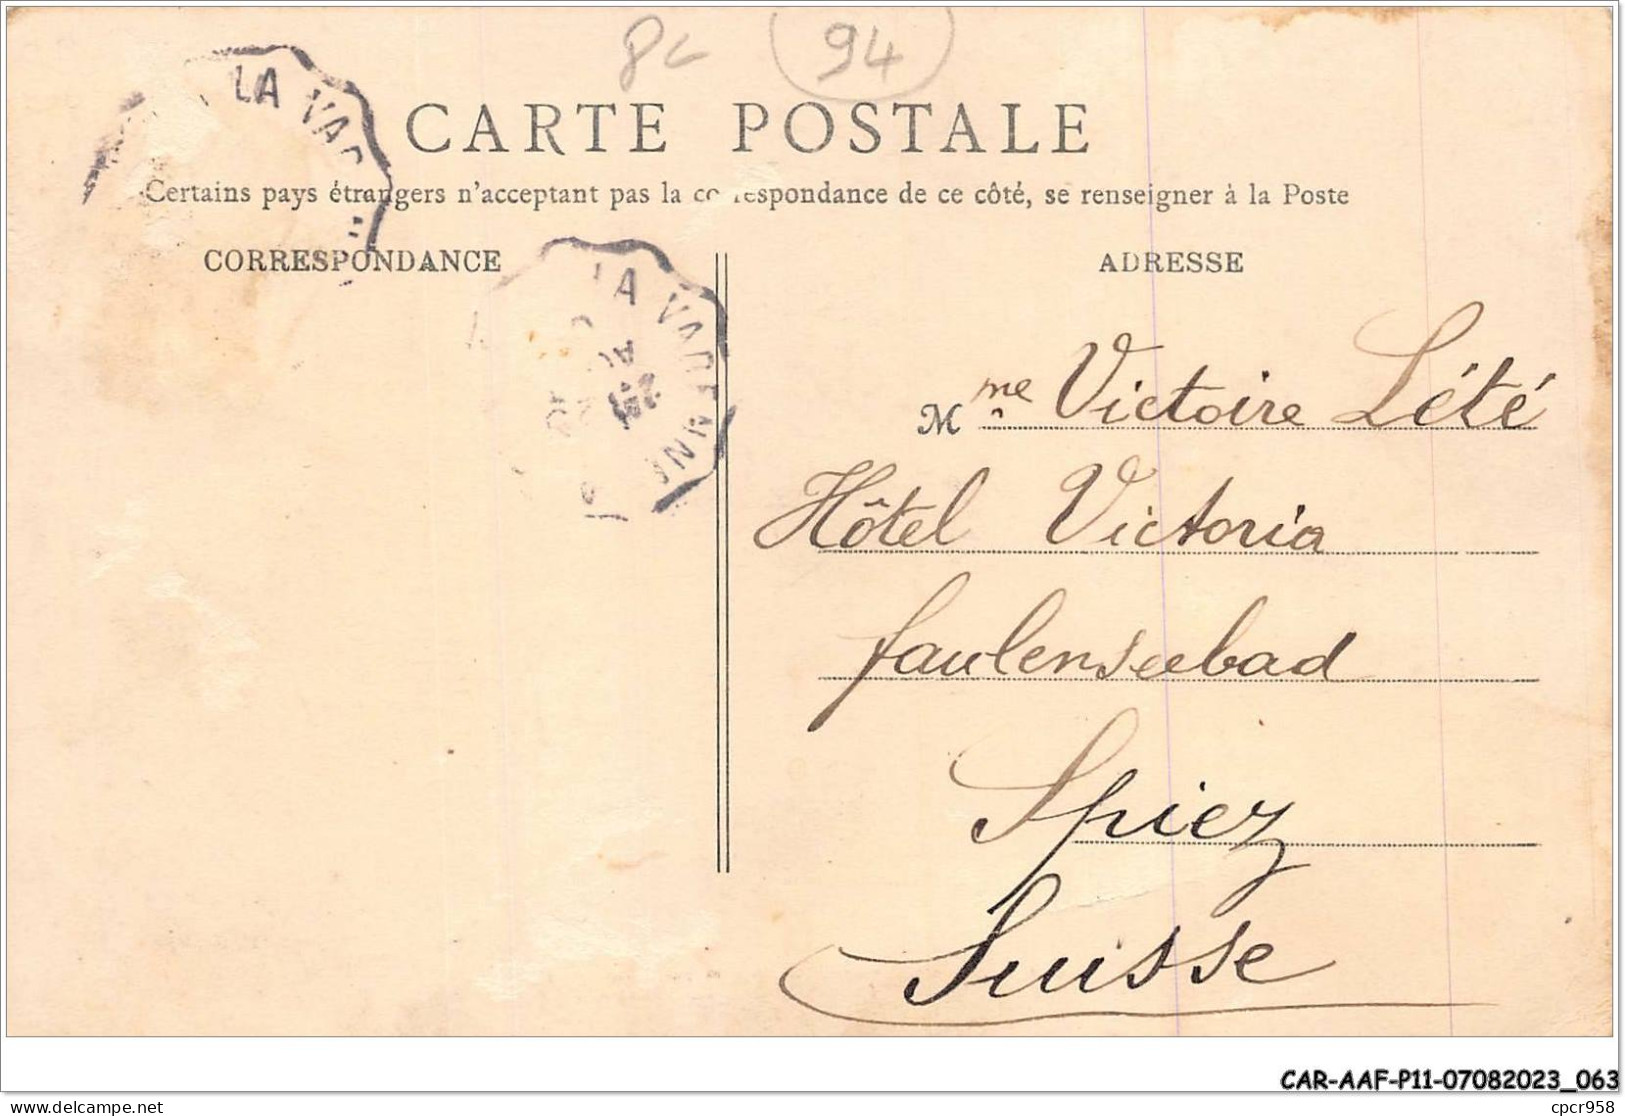 8c 94
LA VAR
CARTE POSTALE
Certains pays étrangers n'acceptant pas la correspondance de ce côté, se renseigner à la Poste
CORRESPONDANCE
ADRESSE
LA VARENNE
Mme Victoire Lété
Hôtel Victoria
faulenseebad
Spiez
Suisse
CAR-AAF-P11-07082023_063
cpcr958